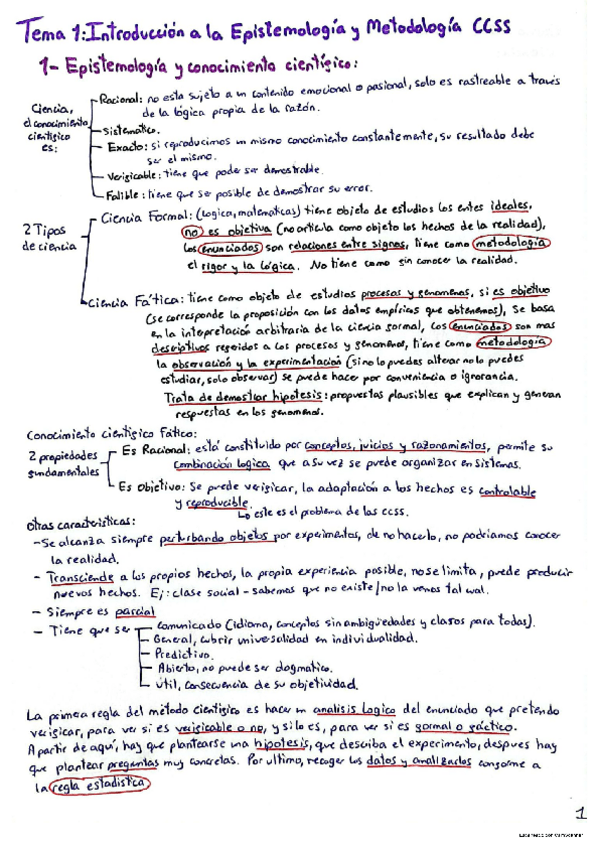 Tema 1: Introducción a la Epistemología y Metodología CCSS
1- Epistemología y conocimiento científico:
Ciencia, el conocimiento científico es:
Racional: no esta sujeto a un contenido emocional o pasional, solo es rastreable a través
de la lógica propia de la razón.
Sistemático.
Exacto: si reproducimos un mismo conocimiento constantemente, su resultado debe
ser el mismo.
Verificable: tiene que poder ser demostrable.
Falible: tiene que ser posible de demostrar su error.
2 Tipos de ciencia
Ciencia Formal: (logica, matematicas) tiene objeto de estudios los entes ideales,
no es objetiva (no articula como objeto los hechos de la realidad),
los enunciados son relaciones entre signos, tiene como metodología
el rigor y la lógica. No tiene como fin conocer la realidad.
Ciencia Fática: tiene como objeto de estudios procesos y fenomenos, si es objetivo
(se corresponde la proposición con los datos empíricos que obtenemos), se basa
en la intepretación arbitraria de la ciencia formal, los enunciados son mas
descriptivos referidos a los procesos y fenomenos, tiene como metodología
la observación y la experimentación (si no lo puedes altear no lo puedes
estudiar, solo observar) se puede hacer por conveniencia o ignorancia.
Trata de demostrar hipotesis: propuestas plausibles que explican y generan
respuestas en los fenomenos.
Conocimiento científico Fático:
2 propiedades fundamentales
Es Racional: está constituido por conceptos, juicios y razonamientos, permite su
combinación logica que a su vez se puede organizar en sistemas.
Es Objetivo: Se puede verificar, la adaptación a los hechos es controlable
y reproducible.
este es el problema de las CCSS.
Otras características:
- Se alcanza siempre perturbando objetos por experimentos, de no hacerlo, no podriamos conocer
la realidad.
- Transciende a los propios hechos, la propia experiencia posible, no se limita, puede producir
nuevos hechos. Ej: clase social - sabemos que no existe/no la vemos tal cual.
- Siempre es parcial
- Tiene que ser
Comunicado (idioma, conceptos sin ambigüedades y claros para todos).
General, cubrir universalidad en individualidad.
Predictivo.
Abierto, no puede ser dogmatico.
Útil, consecuencia de su objetividad.
La primera regla del método científico es hacer un analisis logico del enunciado que pretendo
verificar, para ver si es verificable o no, y si lo es, para ver si es formal o fáctico.
A partir de aquí, hay que plantearse una hipotesis, que describa el experimento, despues hay
que plantear preguntas muy concretas. Por ultimo, recoger los datos y analizarlos conforme a
la regla estadística
1